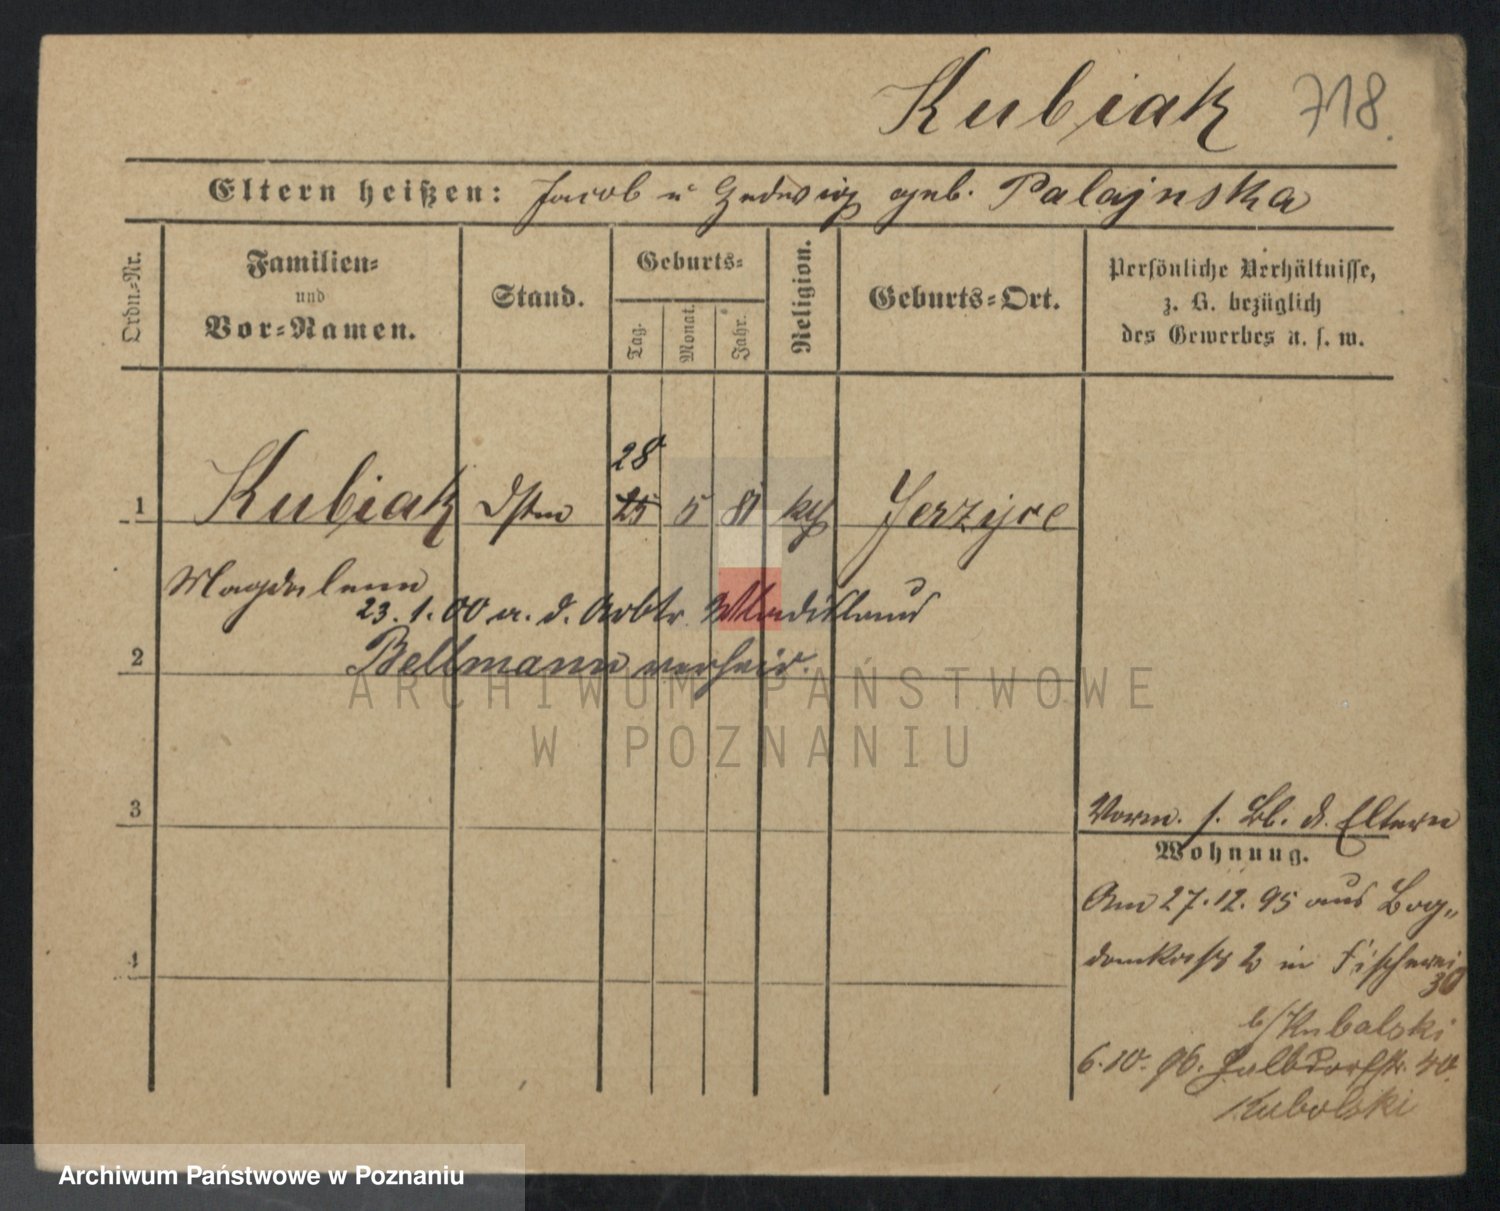 Kubiak 718.
Eltern heißen: Jacob u Hedwig geb. Palajnska
Ordn.-Nr.
Familien-
und
Vor-Namen.
Stand.
Geburts-
Tag.
Monat.
Jahr.
Religion.
Geburts-Ort.
Persönliche Verhältnisse,
z. B. bezüglich
des Gewerbes u. s. w.
28
1 Kubiak 25 5 81 kth Jerzyce
Magdalena
23. 1. 00 a. d. Arbtr Wladislaus
2 Bellmann verheir.
ARCHIWUM PAŃSTWOWE
W POZNANIU
3
Vorm. s. Bl. d. Eltern
Wohnung.
Am 27. 12. 95 aus Bog„
4
2 in Fischerei
30
b/ Kubalski
6. 10. 96. Halbdorfstr. 40.
Kubalski
Archiwum Państwowe w Poznaniu